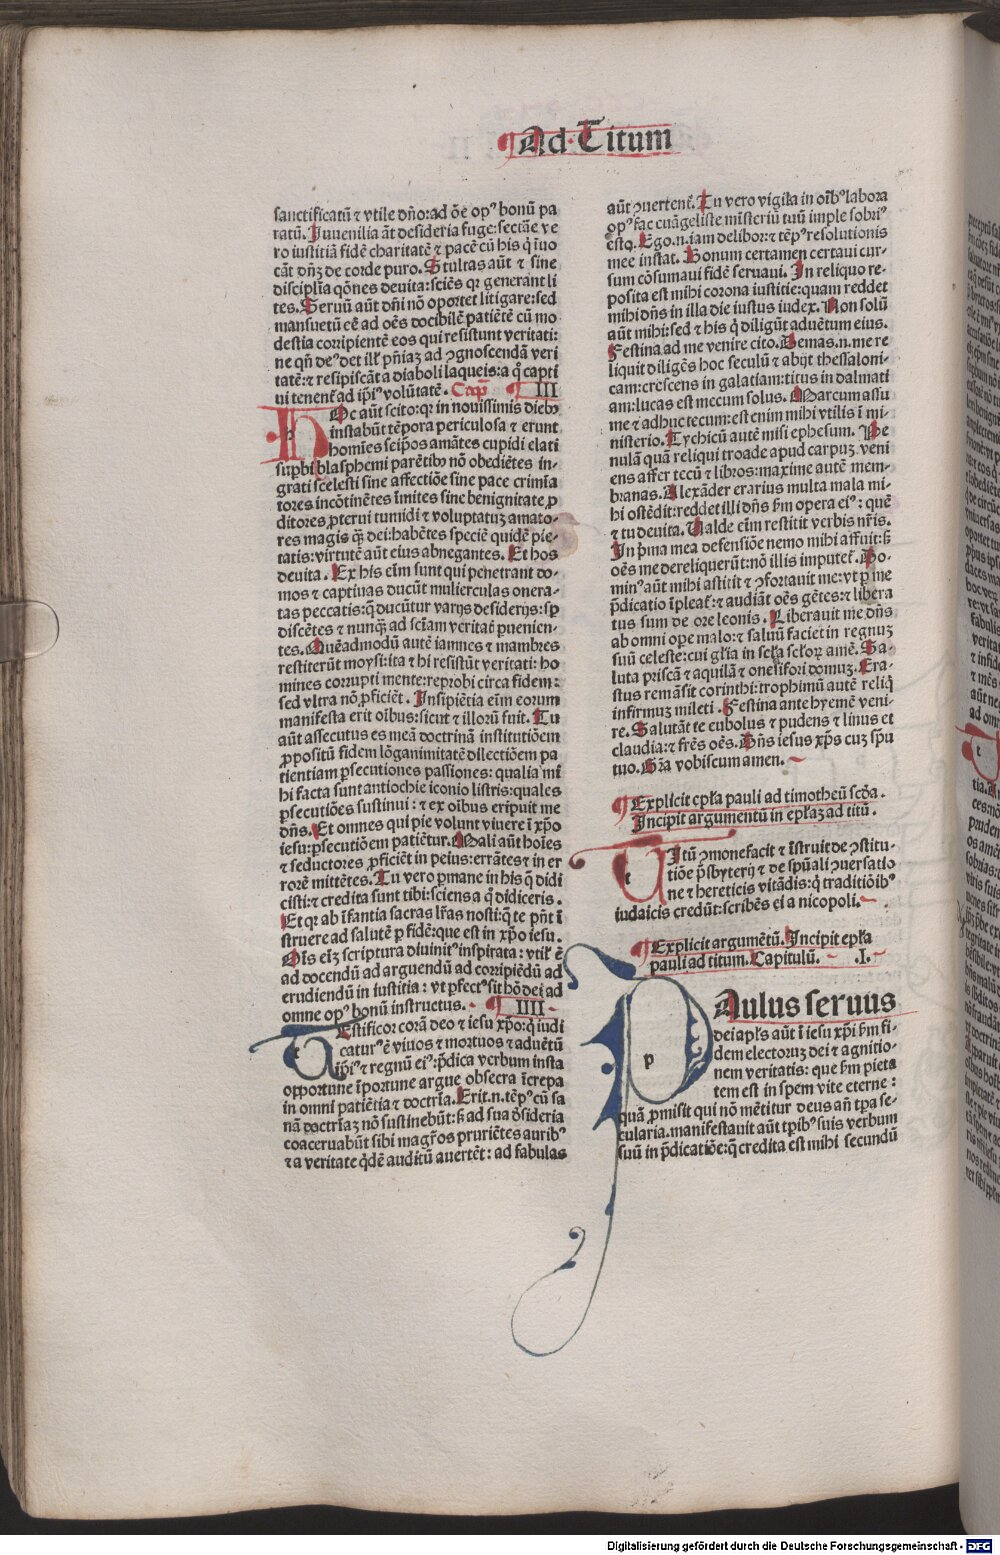 Ad Titum
sanctificatū ⁊ vtile dño: ad õe opꝰ bonū pa
ratū. Iuuenilia āt desideria fuge: sectãe ve
ro iustitiā fidē charitatē ⁊ pacē cū his q̇ īuo
cāt dñʒ de corde puro. Stultas aūt ⁊ sine
disciplīa q̄ōnes deuita: sciēs qꝛ generant li
tes. Seruū aūt dñi nō oportet litigare: sed
mansuetū eē ad oēs docibilē patiētē cū mo
destia corripientē eos qui resistunt veritati:
ne qñ deꝰ det illꝭ pñiaʒ ad ꝯgnoscendā veri
tatē: ⁊ resipiscāt a diaboli laqueis: a q̊ capti
ui tenent̃ ad ip̄iꝰ volūtatē. Capm̄ III
HOc aūt scito: qꝛ in nouissimis diebꝰ
instabūt tēpora periculosa ⁊ erunt
homīes seip̄os amātes cupidi elati
suꝑbi blasphemi parētibꝰ nō obediētes in-
grati scelesti sine affectiōe sine pace crimīa
tores incōtinētes īmites sine benignitate ꝓ
ditores ꝓterui tumidi ⁊ voluptatuʒ amato-
res magis q̄ꝫ dei: habētes speciē quidē pie-
tatis: virtutē aūt eius abnegantes. Et hos
deuita. Ex his eīm sunt qui penetrant do-
mos ⁊ captiuas ducūt mulierculas onera-
tas peccatis: q̄ ducūtur varijs desiderijs: sꝑ
discētes ⁊ nunq̄ꝫ ad sciam veritatꝭ puenien-
tes. Quēadmodū autē iamnes ⁊ mambres
restiterūt moysi: ita ⁊ hi resistūt veritati: ho
mines corrupti mente: reprobi circa fidem:
sed vltra nō ꝓficiēt. Insipiētia eīm eorum
manifesta erit oībus: sicut ⁊ illorū fuit. Tu
aūt assecutus es meā doctrinā institutiōem
ꝓpositū fidem lōganimitatē dilectiōem pa
tientiam ꝑsecutiones passiones: qualia mī
hi facta sunt antiochie iconio listris: quales
ꝑsecutiōes sustinui: ⁊ ex oībus eripuit me
dñs. Et omnes qui pie volunt viuere ī xp̄o
iesu: ꝑsecutiōem patiētur. Mali aūt hoīes
⁊ seductores ꝓficiēt in peius: errātes ⁊ in er
rorē mittētes. Tu vero ꝑmane in his q̄ didi
cisti: ⁊ credita sunt tibi: sciens a q̊ didiceris.
Et qꝛ ab īfantia sacras lr̄as nosti: q̄ te pn̄t ī
struere ad salutē ꝑ fidē: que est in xp̄o iesu.
Oīs eīʒ scriptura diuinitꝰ inspirata: vtilꝭ ē
ad docendū ad arguendū ad corripiēdū ad
erudiendū in iustitia: vt ꝑfectꝰ sit hō dei ad
omne opꝰ bonū instructus. IIII
TEstificor corā deo ⁊ iesu xp̄o: q̇ iudi
caturꝰ ē viuos ⁊ mortuos ⁊ aduētū
ip̄iꝰ ⁊ regnū eiꝰ: p̄dica verbum insta
opportune īportune argue obsecra īcrepa
in omni patiētia ⁊ doctrīa. Erit.n.tēpꝰ cū sa
nā doctrīaʒ nō sustinebūt: sꝫ ad sua d̄sideria
coaceruabūt sibi magr̄os pruriētes auribꝰ
⁊ a veritate q̇dē auditū auertēt: ad fabulas
aūt ꝯuertent̃. Tu vero vigila in oībꝰ labora
opꝰ fac euāgeliste misteriū tuū imple sobriꝰ
estoꝫ. Ego.n.iam delibor: ⁊ tēpꝰ resolutionis
mee instat. Bonum certamen certaui cur-
sum cōsumaui fidē seruaui. In reliquo re-
posita est mihi corona iustitie: quam reddet
mihi dñs in illa die iustus iudex. Non solū
aūt mihi: sed ⁊ his q̇ diligūt aduētum eius.
Festina ad me venire cito. Demas.n.me re
liquit diligēs hoc seculū ⁊ abijt thessaloni-
cam: crescens in galatiam: titus in dalmati
am: lucas est mecum solus. Marcum assu
me ⁊ adhuc tecum: est enim mihi vtilis ī mi-
nisterio. Tychicū autē misi ephesum. Pe
nulā quā reliqui troade apud carpuʒ. veni
ens affer tecū ⁊ libros: maxime autē mem-
branas. Alexāder erarius multa mala mi-
hi ostēdit: reddet illi dñs sm̄ opera eiꝰ: quē
⁊ tu deuita. Valde eīm restitit verbis nr̄is.
In p̄ma mea defensiōe nemo mihi affuit: sꝫ
oēs me dereliquerūt: nō illis imputet̃. Do-
minꝰ aūt mihi astitit ⁊ ꝯfortauit me: vt ꝑ me
p̄dicatio īpleat̃: ⁊ audiāt oēs gētes: ⁊ libera
tus sum de ore leonis. Liberauit me dñs
ab omni opere malo: ⁊ saluū faciet in regnuʒ
suū celeste: cui gl̄ia in scl̄a scl̄oꝝ amē. Sa-
luta priscā ⁊ aquilā ⁊ onesifori domuʒ. Era-
stus remāsit corinthi: trophimū autē reliq̇
infirmuʒ mileti. Festina ante hyemē veni-
re. Salutāt te eubolus ⁊ pudens ⁊ linus et
claudia: ⁊ fr̄es oēs. Dñs iesus xp̄s cuʒ sp̄u
tuo. Gr̄a vobiscum amen.
Explicit epl̄a pauli ad timotheū scd̄a.
Incipit argumentū in epl̄aʒ ad titū.
TItū ꝯmonefacit ⁊ īstruit de ꝯstitu-
tiōe p̄sbyterij ⁊ de sp̄uali ꝯuersatio
ne ⁊ hereticis vitādis: q̇ traditiōibꝰ
iudaicis credūt: scribēs ei a nicopoli.
Explicit argumētū. Incipit epl̄a
pauli ad titum. Capitulū. .I.
PAulus seruus
dei apl̄s aūt ī iesu xp̄i sm̄ fi-
dem electoruʒ dei ⁊ agnitio-
nem veritatis: que sm̄ pieta
tem est in spem vite eterne:
quā ꝓmisit qui nō mētitur deus añ tꝑa se-
cularia. manifestauit aūt tꝑibꝰ suis verbum
suū in p̄dicatiōe: q̄ credita est mihi secundū
Digitalisierung gefördert durch die Deutsche Forschungsgemeinschaft - DFG